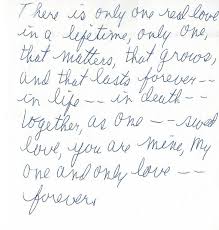 There is only one real love
in a lifetime, only one,
that matters, that grows,
and that lasts forever--
in life -- in death --
together, as one -- sweet
love, you are mine, my
one and only love --
forever.